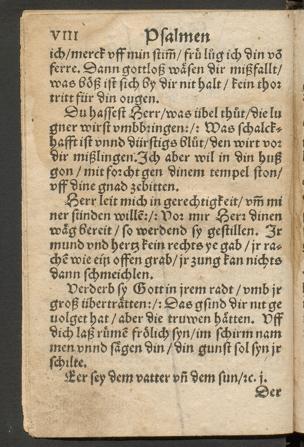 VIII Psalmen
ich/merck vff min stim̃/ frü lůg ich din võ
ferre. Dann gottloß wäsen dir mißfallt/
was böß ist sich by dir nit halt/ kein thor
tritt für din ougen.
Du hassest Herr/was übel thůt/die lu
gner wirst vmbbringen:/: Was schalck-
hafft ist vnnd dürstigs Blůt/den wirt vor
dir mißlingen. Ich aber wil in din huß
gon/mit forcht gen dinem tempel ston/
vff dine gnad zebitten.
Herr leit mich in gerechtigkeit/vm̃ mi
ner finden willẽ:/: Vor mir Herr dinen
wäg bereit/so werdend sy gestillen. Ir
mund vnd hertz kein rechts ye gab/jr ra-
chẽ wie ein offen grab/jr zung kan nichts
dann schmeichlen.
Verderb sy Gott in jrem radt/vmb jr
groß überträtten:/: Das gsind dir nit ge
uolget hat/aber die truwen hätten. Vff
dich laß rümẽ frölich syn/im schirm nam
men vnnd sägen din/din gunst sol syn jr
schilte.
Eer sey dem vatter vñ dem sun/ꝛc. j.
Der